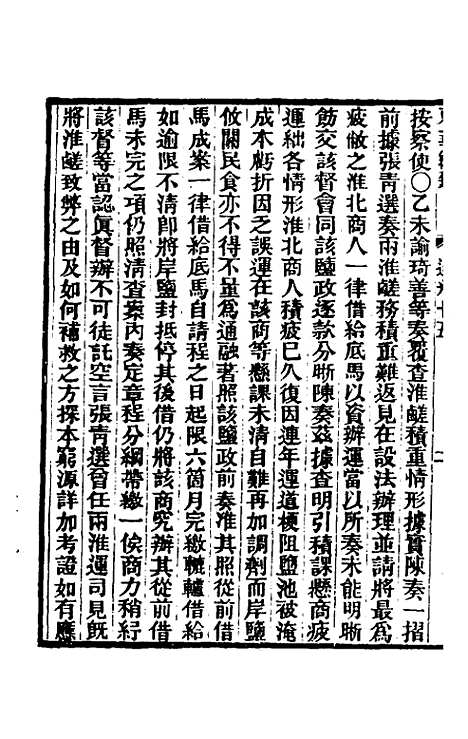 按察使○乙未諭琦善等奏覆查淮鹺積重情形據實陳奏一摺
前據張青選奏兩淮鹺務積重難返見在設法辦理並請將最爲
疲敝之淮北商人一律借給底馬以資辦運當以所奏未能明晰
飭交該督會同該鹽政逐款分晰陳奏茲據查明引積課懸商疲
運絀各情形淮北商人積疲已久復因連年運道梗阻鹽池被淹
成本虧折因之誤運在該商等懸課未清自難再加調劑而岸鹽
攸關民食亦不得不量爲通融著照該鹽政前奏准其照從前借
馬成案一律借給底馬自請程之日起限六箇月完繳轆轤借給
如逾限不清卽將岸鹽封抵停其後借仍將該商究辦其從前借
馬未完之項仍照清查案內奏定章程分綱帶繳一俟商力稍紓
該督等當認眞督辦不可徒託空言張青選曾任兩淮運司見旣
將淮鹺致弊之由及如何補救之方探本窮源詳加考證如有應